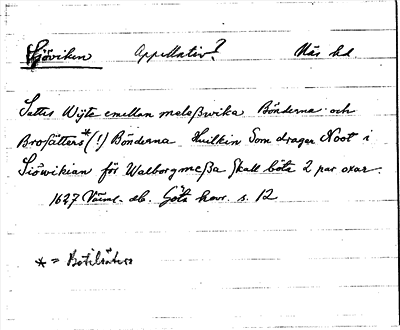 Sjöviken Appellativ? Näs hd.
Sattes Wijte emellan meleßwika Bönderna och
Brosätters*(!) Bönderna Huilkin Som drager Noot i
Siöwikian för Walborgmeßa skall böta 2 par oxar.
1627 Värml. db. Göta hovr. s. 12
* = Botilsäters